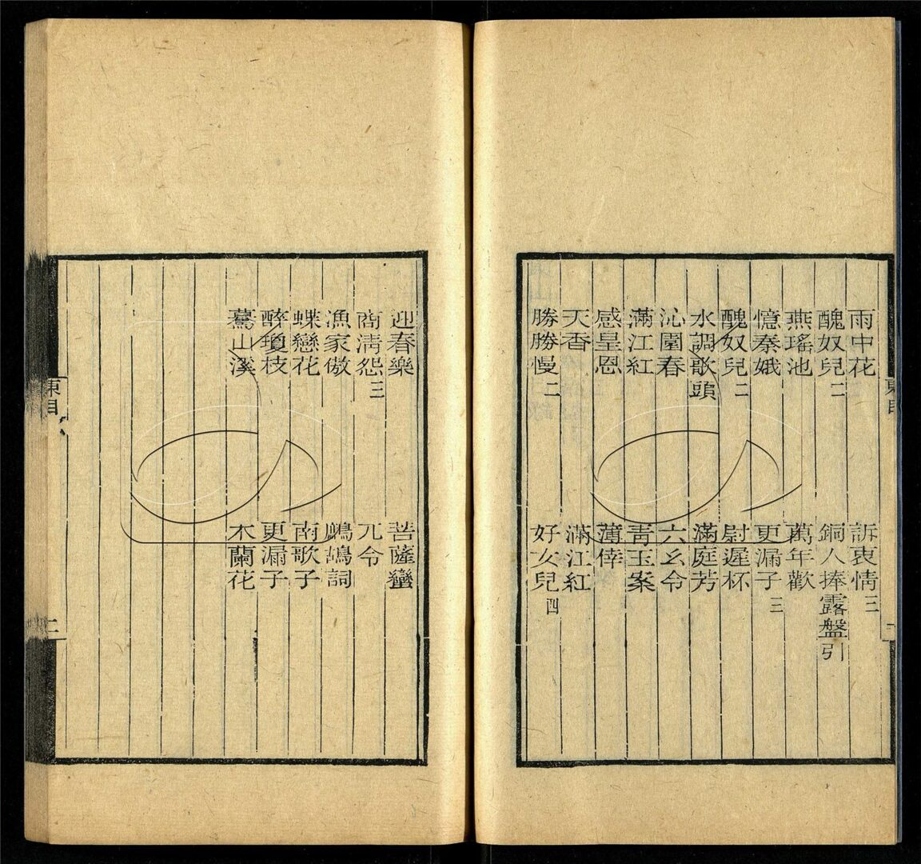 雨中花 訴衷情三
醜奴兒二 銅人捧露盤引
燕瑤池 萬年歡
憶秦娥 更漏子三
醜奴兒二 尉遲杯
水調歌頭 滿庭芳
沁園春 六幺令
滿江紅 青玉案
感皇恩 薄倖
天香 滿江紅
勝勝慢二 好女兒四
迎春樂 菩薩蠻
商清怨三 兀令
漁家傲 鷓鴣詞
蝶戀花 南歌子
醉瓊枝 更漏子
驀山溪 木蘭花
東目 二